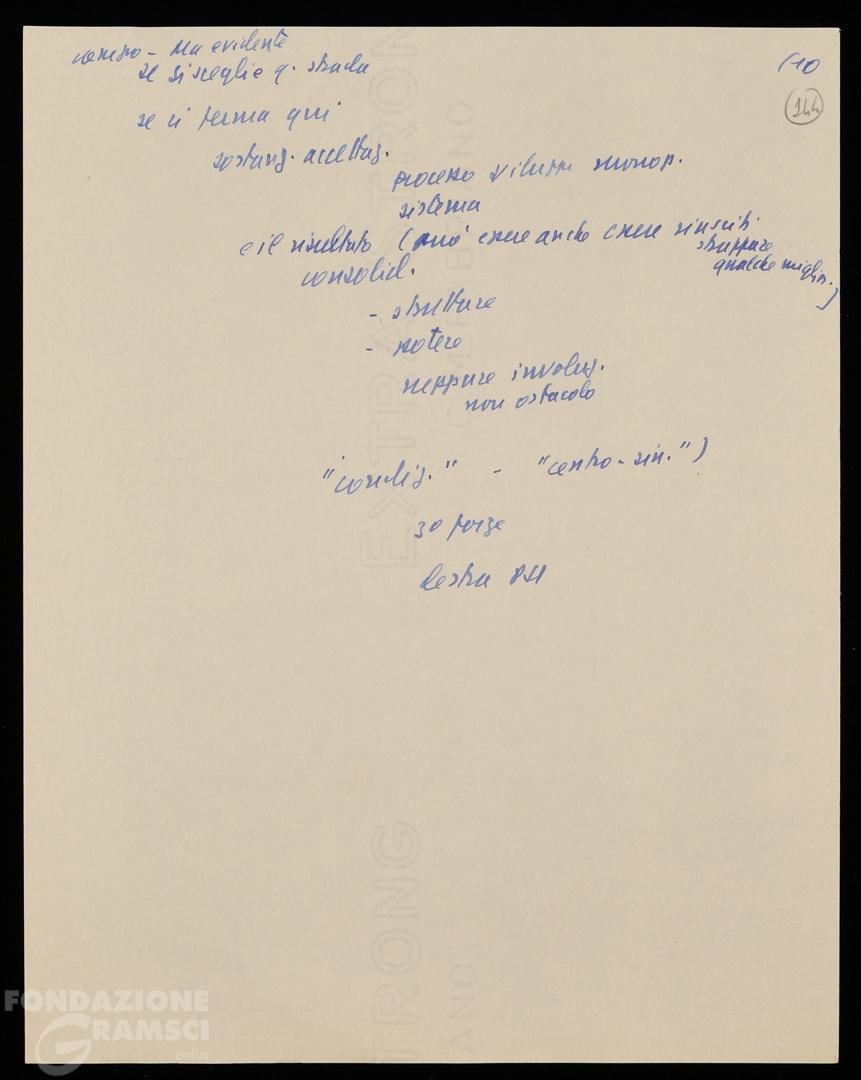 - Ma evidente
se si sceglie q. strada
(10
144
se ci ferma qui
sostanz. accettaz.
processo sviluppo monop.
sistema
e il risultato (può essere anche essere riusciti
strappare
qualche miglior.)
consolid.
- strutture
- potere
neppure involuz.
non ostacolo
"condiz." - "centro-sin.")
3º forze
destra PSI
EXTRA STRONG
FONDAZIONE
GRAMSCI
onlus